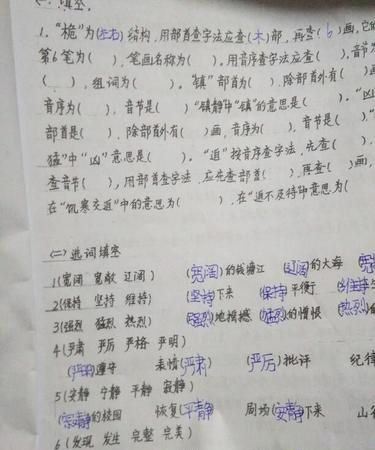 (一) 填空.
1. "桅"为(左右)结构, 用部首查字法应查(木)部, 再查(6)画, 它的
第6笔为( ), 笔画名称为( ), 用音序查字法应查( ), 音节为
( ), 组词为( ). "镇"部首为( ), 除部首外有(
音序为( ), 音节是( ) "镇静"中"镇"的意思是( ). "凶
部首是( ), 除部首外有( )画, 音序为( ), 音节是( ). "
猛"中"凶"意思是( ). "迫"按音序查字法, 先查( ),
查音节( ), 用部首查字法, 应先查部首( ), 再查( )画,
在"饥寒交迫"中的意思为( ), 在"迫不及待"中意思为(
(二) 选词填空
1(宽阔 宽敞 辽阔) (宽阔)的钱塘江 (辽阔)的大海 (宽
2(保持 坚持 维持) (坚持)下来 (保持)平衡 (维持
3(强烈 猛烈 热烈) (强烈)地摇撼 (猛烈)的憎恨 (热烈)
4(严肃 严厉 严格 严明)
(严格)遵守 表情(严肃) (严厉)批评 纪律
5(安静 宁静 平静 寂静)
(寂静)的校园 恢复(平静) 周场(安静)下来 山
6(发现 发生 完整 完美)